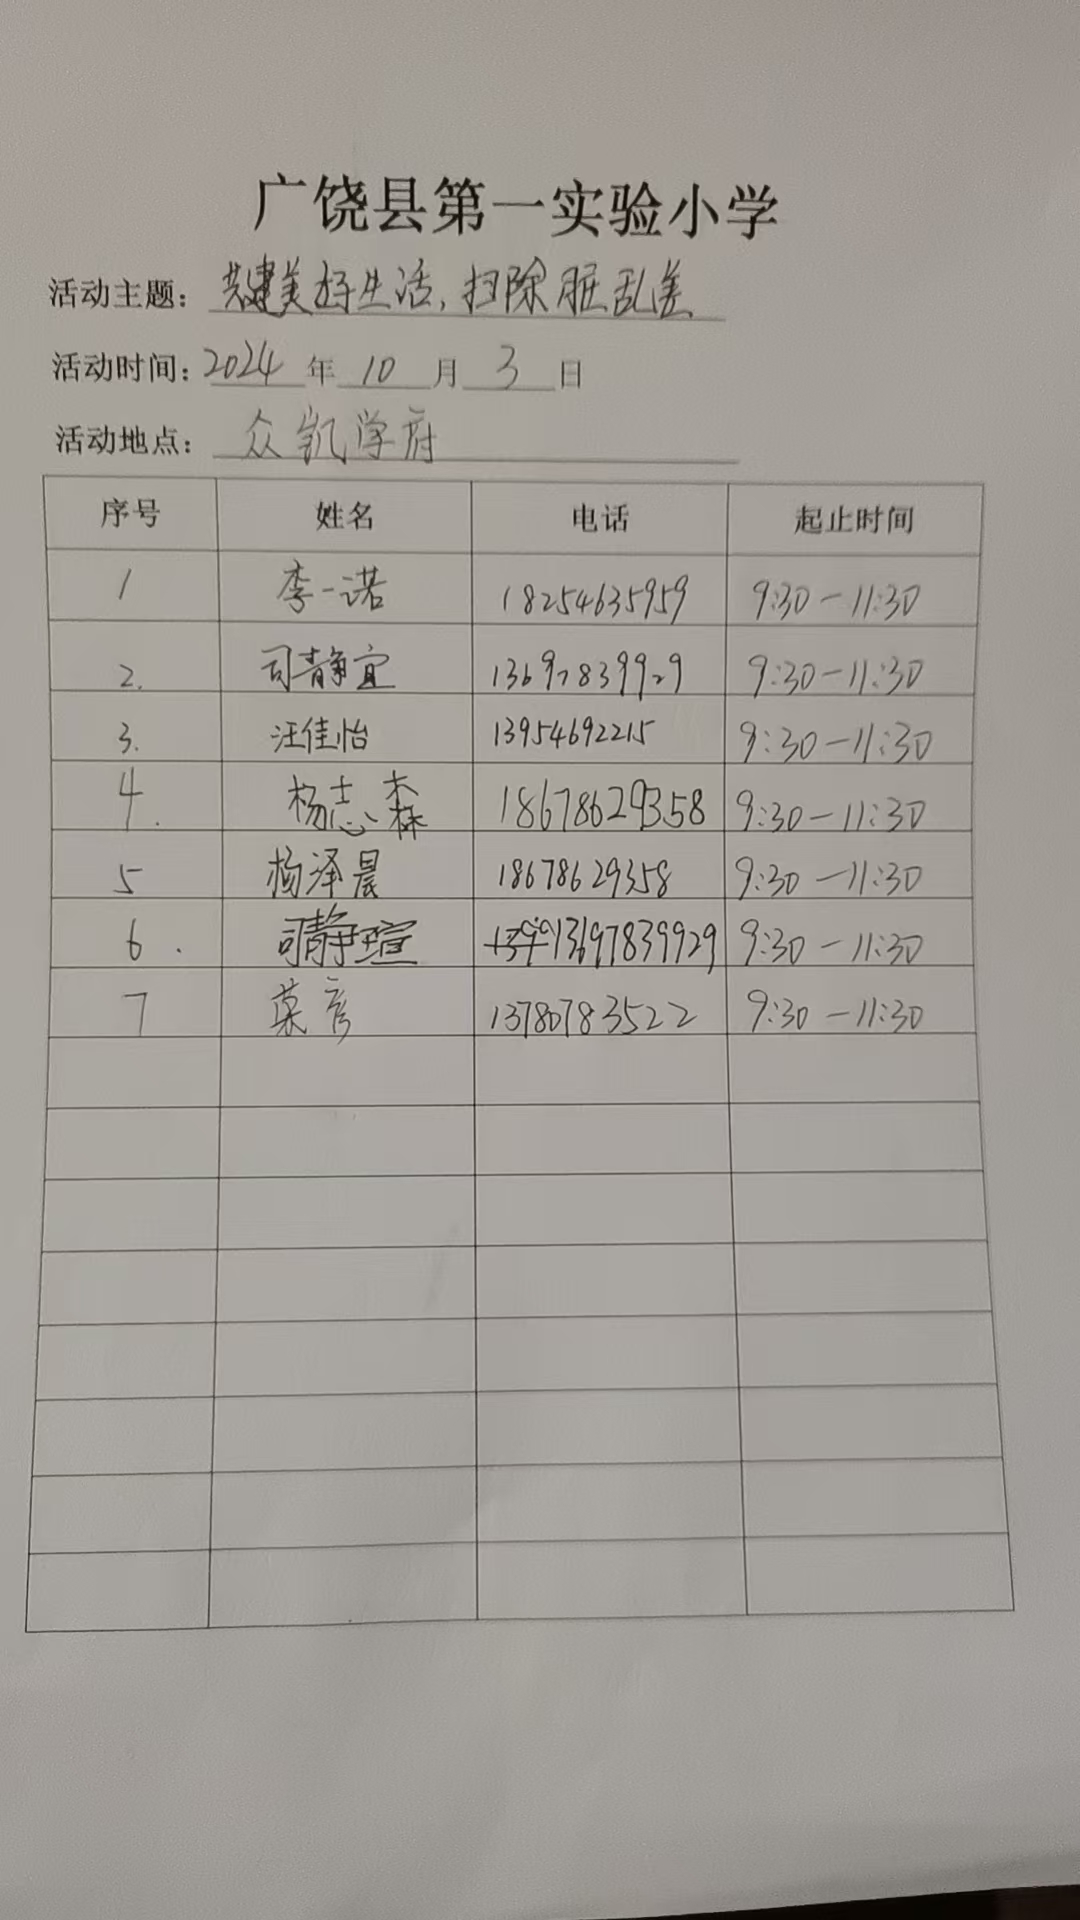 广饶县第一实验小学
活动主题：共建美好生活，扫除脏乱差
活动时间：2024年10月3日
活动地点：众凯学府
序号 姓名 电话 起止时间
1 李一诺 18254635959 9:30—11:30
2. 司静宜 13697839929 9:30—11:30
3. 汪佳怡 13954692215 9:30—11:30
4. 杨志森 18678629358 9:30—11:30
5 杨泽晨 18678629358 9:30—11:30
6. 司静瑄 13697839929 9:30—11:30
7 13780783522 9:30—11:30